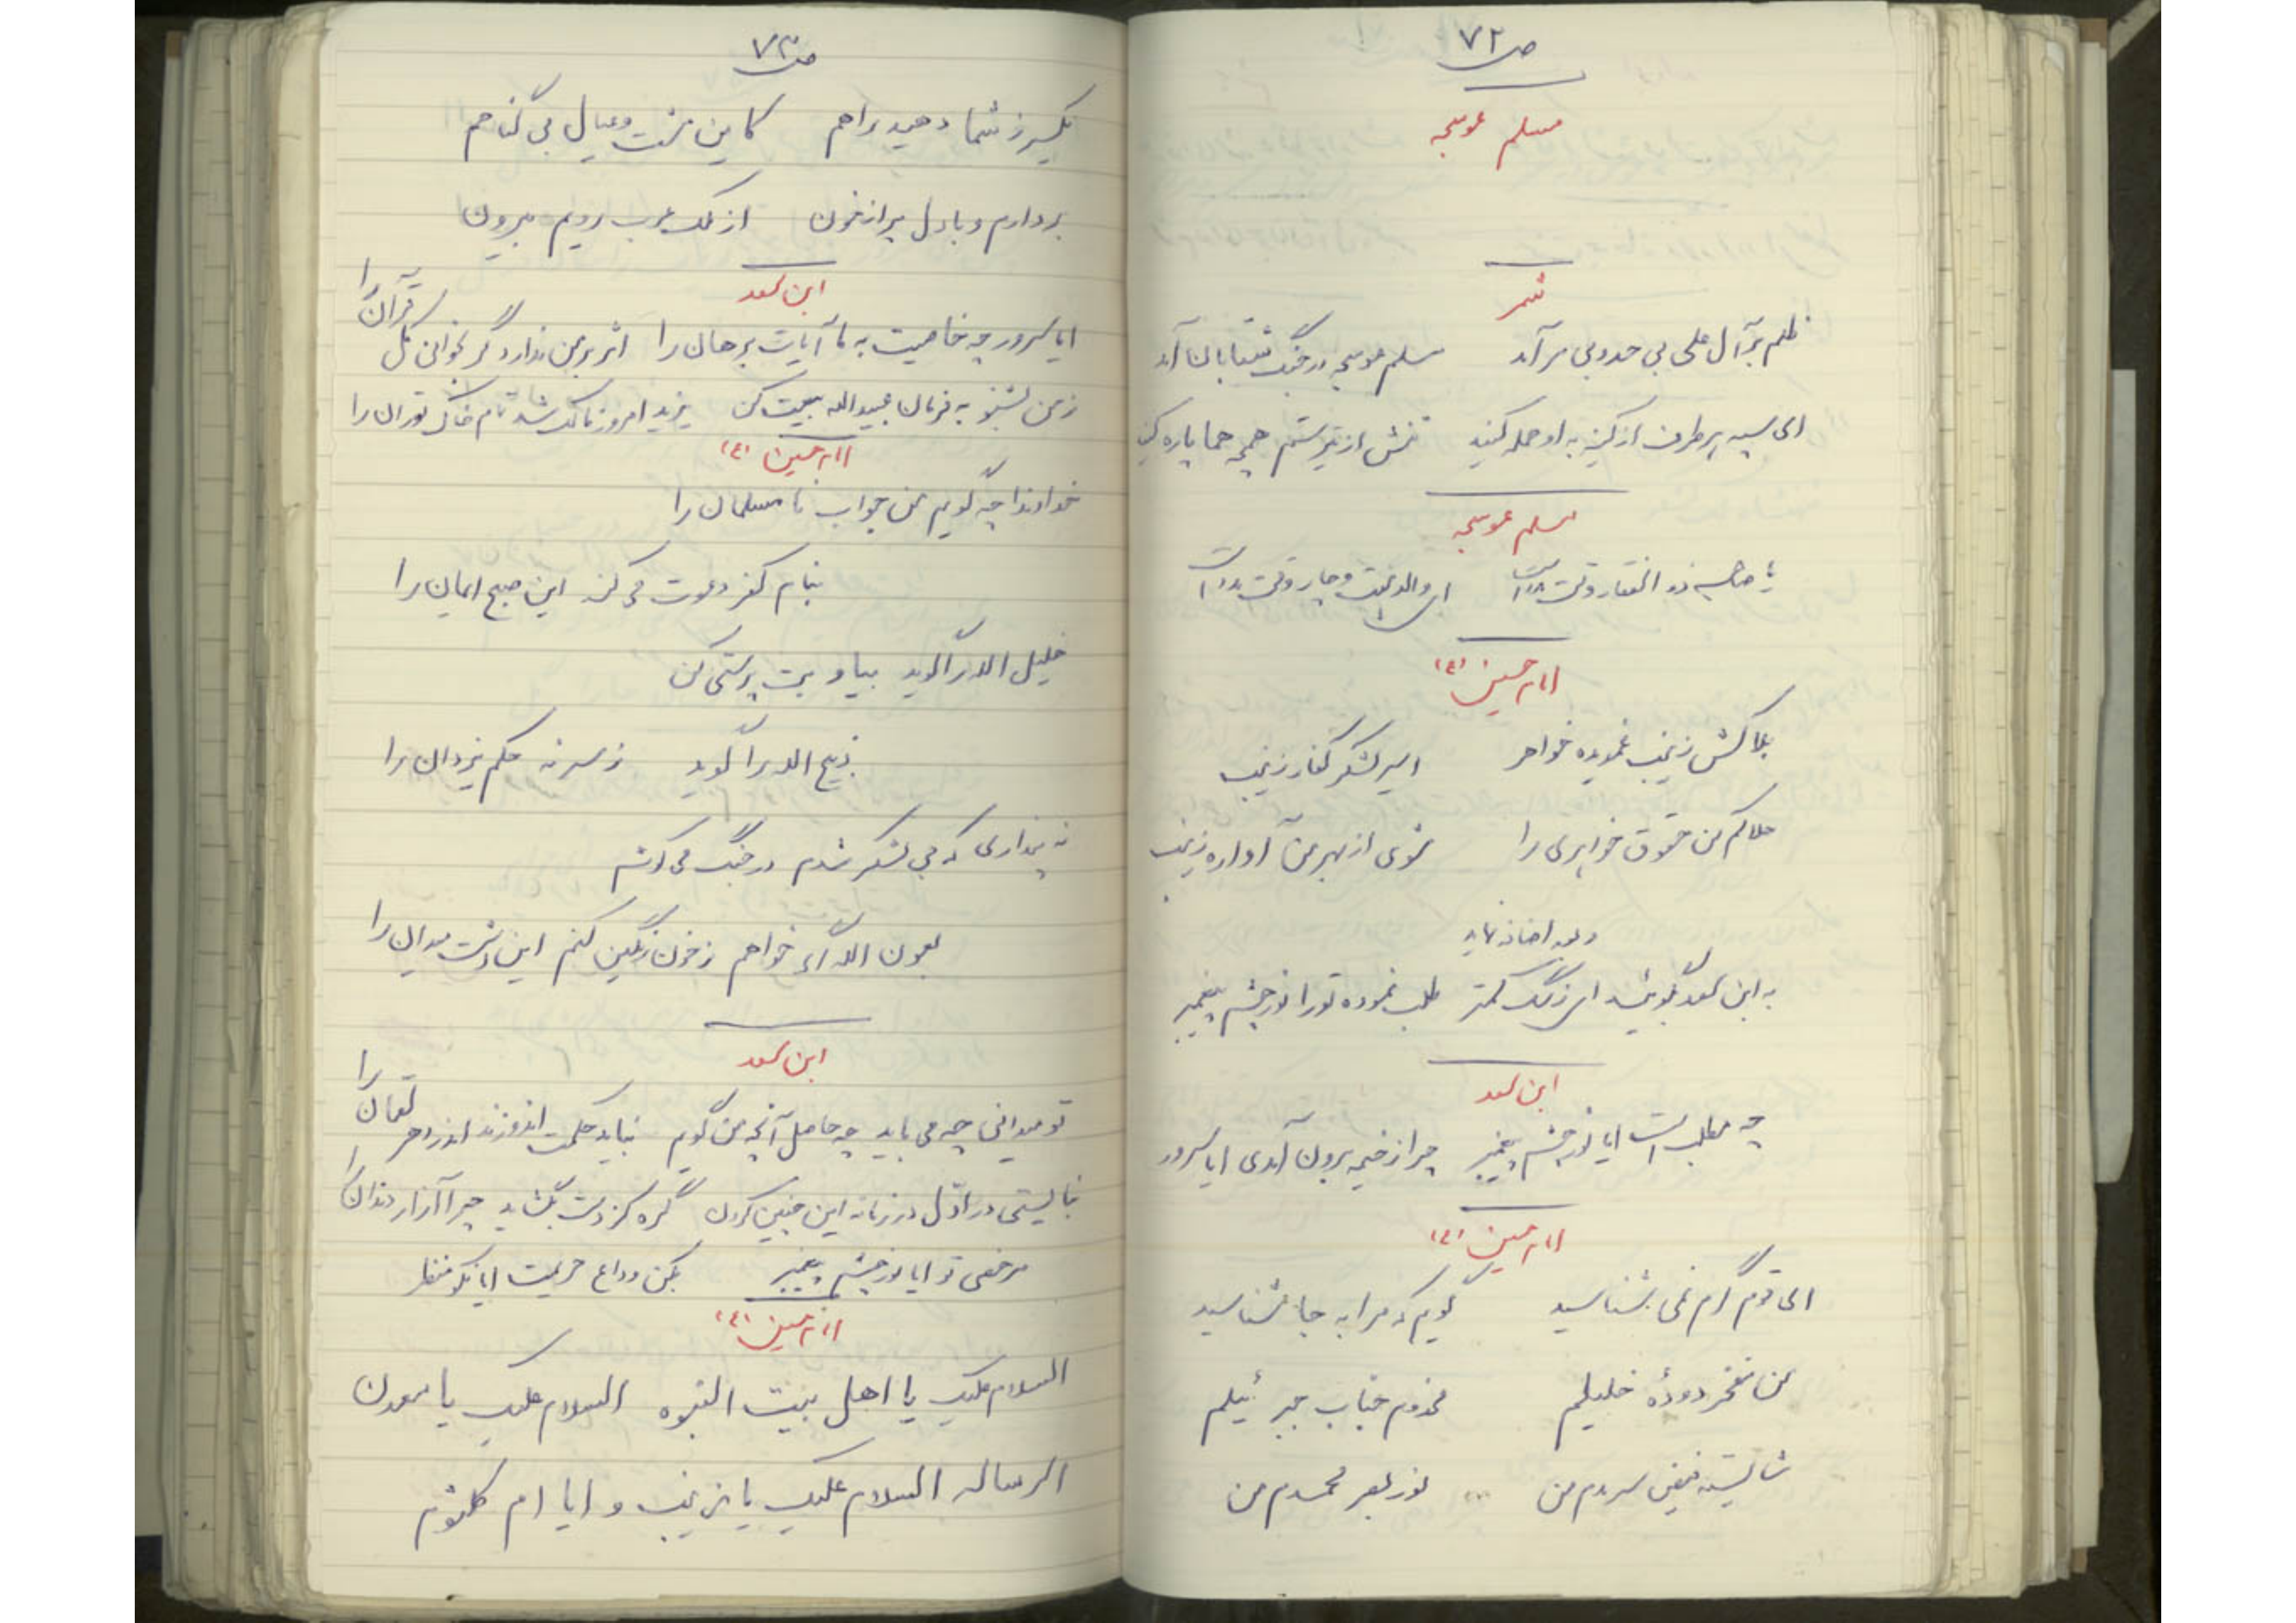 ص ۷۲
مسلم عوسجه
شمر
ظلم بر آل علی بی حد و بی مر آمد مسلم عوسجه در جنگ شتابان آمد
ای سپه هر طرف از کینه به او حمله کنید تنش از تیر ستم همچه پاره کنید
مسلم عوسجه
یا صاحب ذوالفقار وقت است
امام حسین (ع)
بلاکش زینب غمدیده خواهر اسیر لشکر کفار زینب
حلالم کن حقوق خواهری را شوی از بهر من آواره زینب
به ابن سعد بگوئید ای ز سگ کمتر طلب نموده تو را نور چشم پیغمبر
ابن سعد
چه مطلب است ایا نور چشم پیغمبر چرا از خیمه برون آمدی ایا سرور
امام حسین (ع)
ای قوم گرم نمی شناسید گویم که مرا به جا شناسید
من مفخر دودهٔ خلیلم مخدوم جناب جبرئیلم
شایسته فیض سرمدم من نور بصر محمدم من
ص ۷۳
یکسر ز شما دهید راهم کاین مشت و عیال بی گناهم
بردارم و با دل پر از خون از ملک عرب رویم بیرون
ابن سعد
ایا سرور چه خاصیت به ما آیات برهان را اثر بر من ندارد گر بخوانی کل قرآن را
ز من بشنو به فرمان عبیدالله بیعت کن یزید امروز مالک شد تمام خاک توران را
امام حسین (ع)
خداوندا چه گویم من جواب نا مسلمان را
بنام کفر دعوت می کند این صبح ایمان را
خلیل الله را گوید بیا و بت پرستی کن
ذبیح الله را گوید ز سر نه حکم یزدان را
نه پنداری که بی لشکر شدم در جنگ می کوشم
بعون الله اگر خواهم ز خون رنگین کنم این دشت میدان را
ابن سعد
تو میدانی چه می باید چه حاصل آنچه من گویم نباید حکمت اندوزند اندر دهر لقمان را
نبایستی در اول در زمانه این چنین کردن گره کز دست بگشاید چرا آزار دندان را
مرخصی تو ایا نور چشم پیغمبر بکن وداع حریمت ایا نکو منظر
امام حسین (ع)
السلام علیک یا اهل بیت النبوه السلام علیک یا معدن
الرساله السلام علیک یا زینب و ایا ام کلثوم